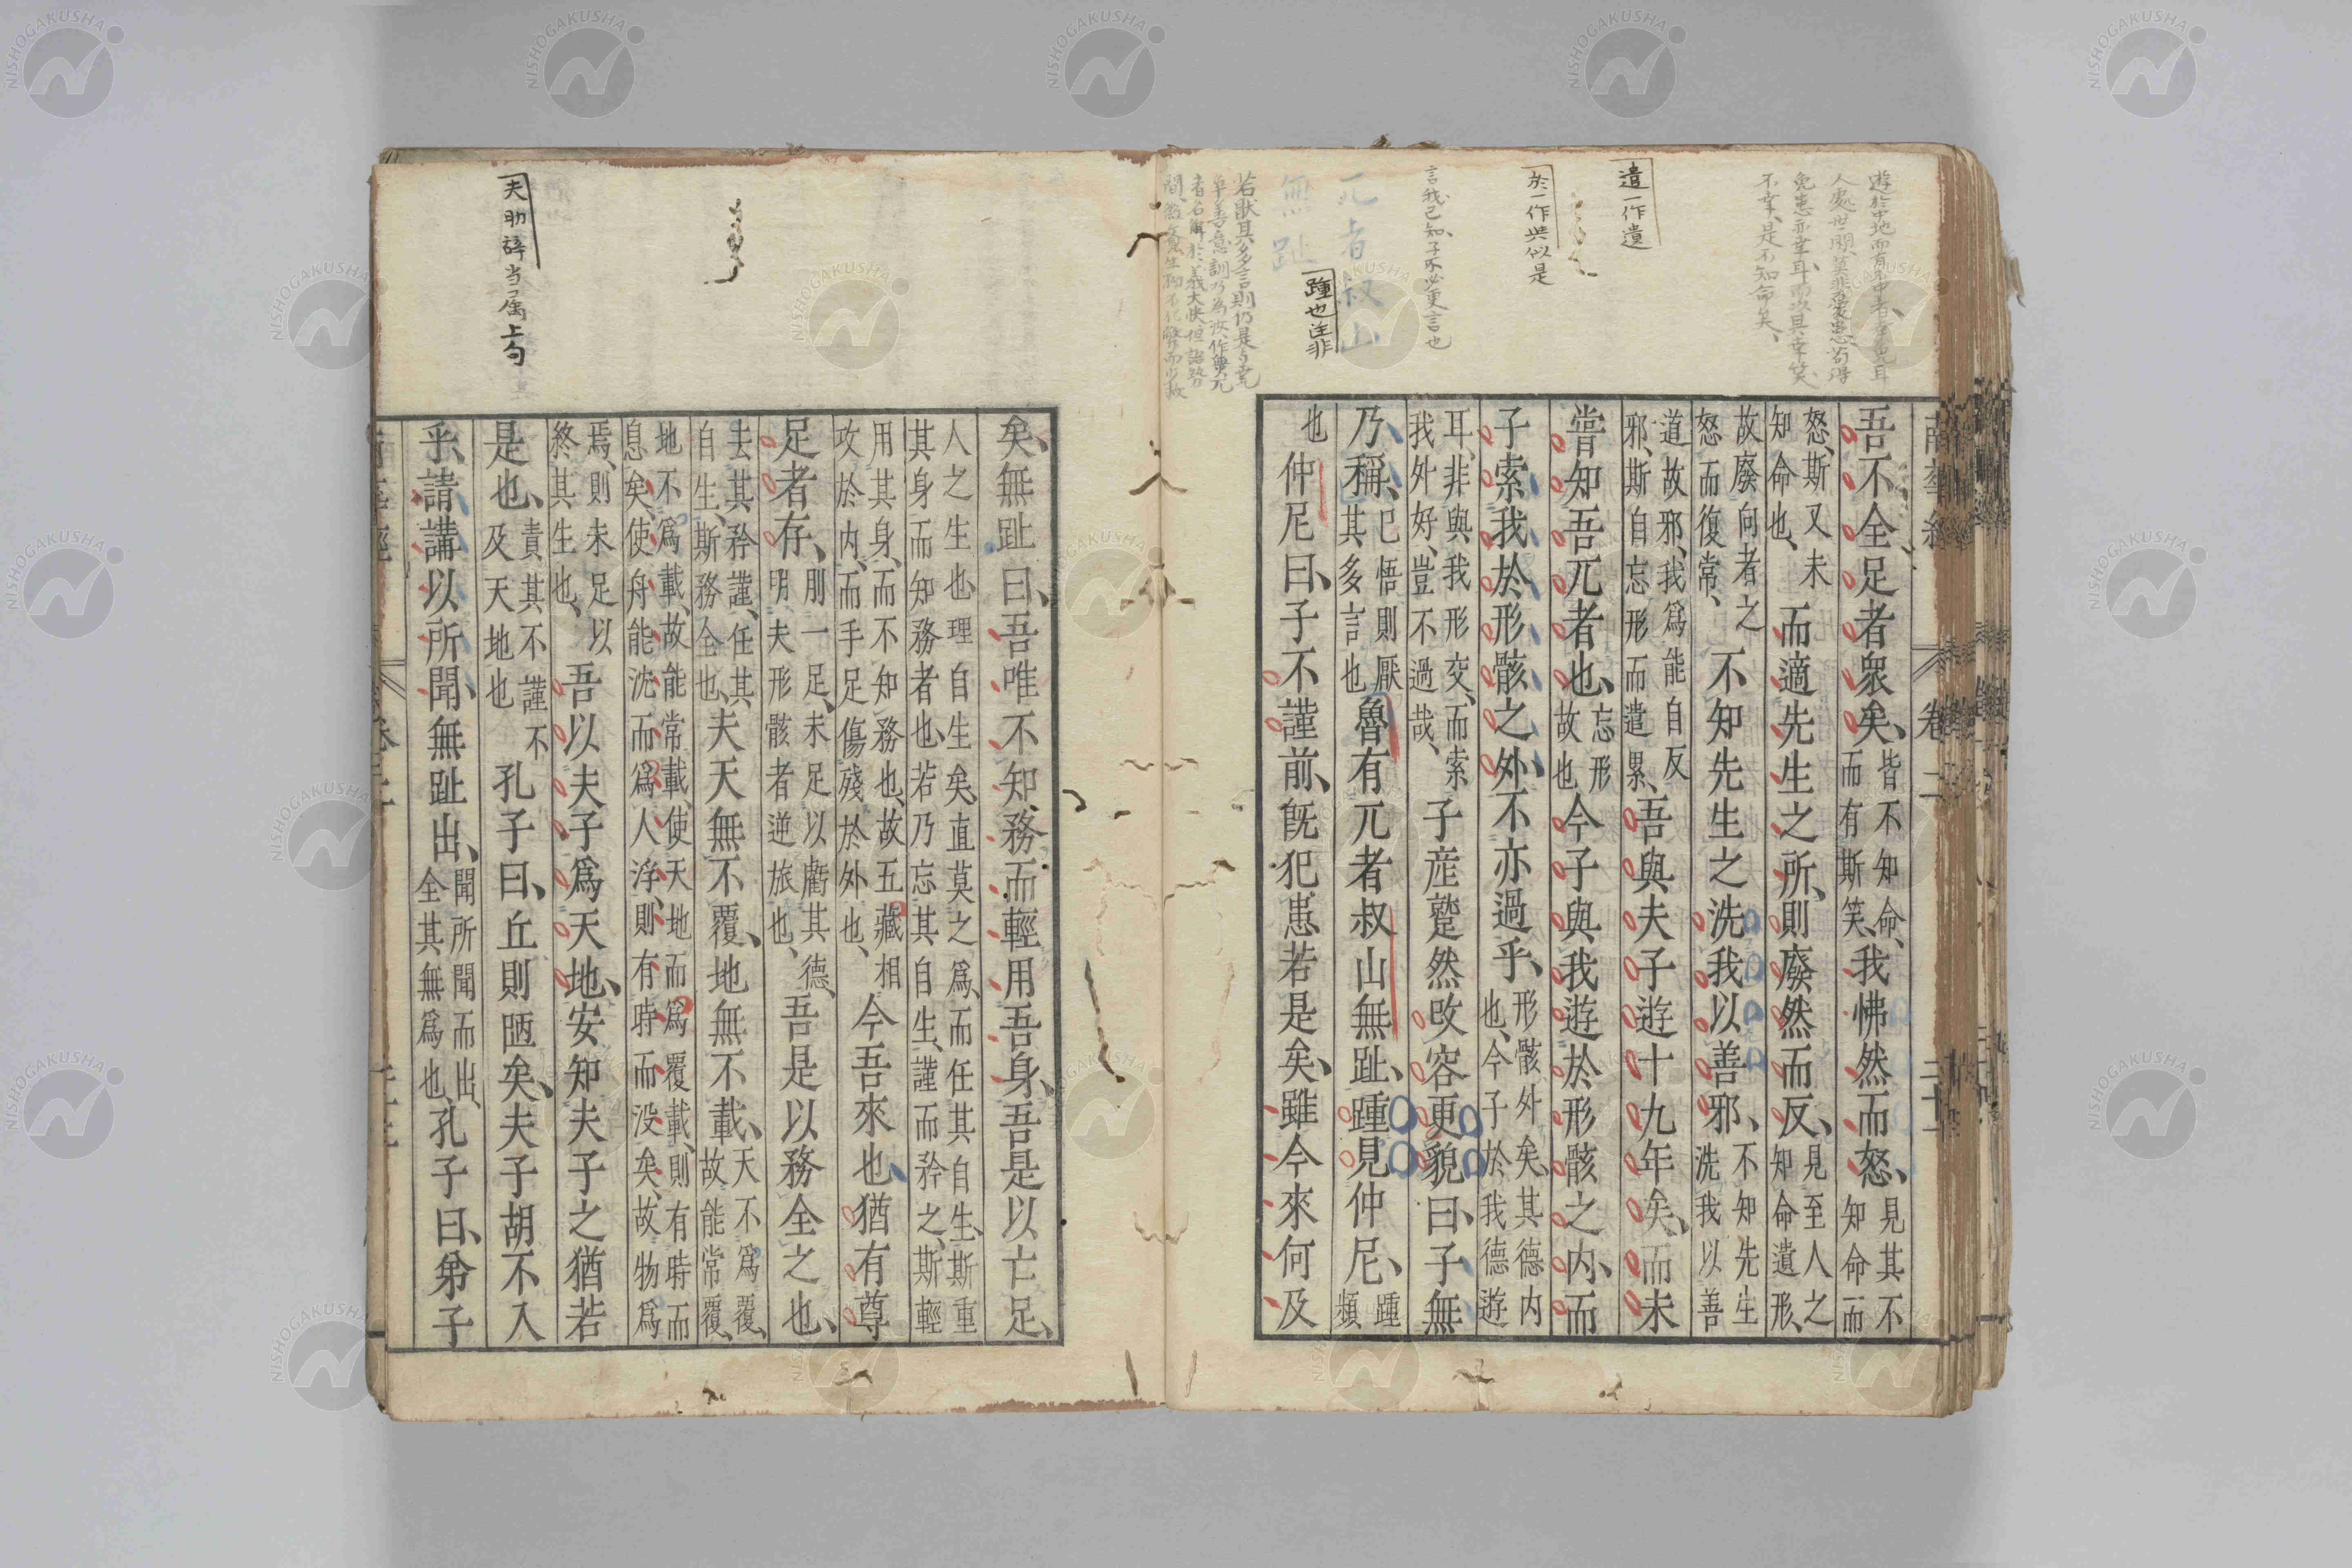 遊於中地而有不中者幸免耳
人處世間莫非憂患苟得
免患亦幸耳而以其幸笑
不幸、是不知命矣、
遣一作遺
於一作與似是
言我已知子不必更言也
兀者叔山
無趾
踵也注非
南華經 卷二 二十一
吾不全足者衆矣、皆不知命、而有斯笑、我怫然而怒、見其不知命而
怒、斯又未知命也、而適先生之所、則廢然而反、見至人之知命遺形、
故廢向者之怒而復常、不知先生之洗我以善邪、不知先生洗我以善
道故邪、我爲能自反邪、斯自忘形而遣累、吾與夫子遊十九年矣、而未
甞知吾兀者也、忘形故也今子與我遊於形骸之内、而
子索我於形骸之外、不亦過乎、形骸外矣、其德内也、今子於我德遊
耳、非與我形交、而索我外好、豈不過哉、子產蹵然改容更貌曰、子無
乃稱、已悟則厭其多言也魯有兀者叔山無趾、踵見仲尼、踵頻
也仲尼曰、子不謹前、旣犯患若是矣、雖今來何及
夫助辞当属上句
矣、無趾曰、吾唯不知務而輕用吾身、吾是以亡足、
人之生也理自生矣、直莫之爲、而任其自生、斯重其身而知務者也、若乃忘其自生、謹而矜之、斯輕
用其身、而不知務也、故五藏相攻於内、而手足傷殘於外也、今吾來也、猶有尊
足者存、刖一足、未足以虧其德、明夫形骸者逆旅也、吾是以務全之也、
去其矜謹、任其自生、斯務全也、夫天無不覆、地無不載、天不爲覆、故能常覆、
地不爲載、故能常載、使天地而爲覆載、則有時而息矣、使舟能沈而爲人浮、則有時而没矣、故物爲
焉、則未足以終其生也、吾以夫子爲天地、安知夫子之猶若
是也、責其不謹不及天地也孔子曰、丘則陋矣、夫子胡不入
乎、請講以所聞、無趾出、聞所聞而出、全其無爲也、孔子曰、弟子